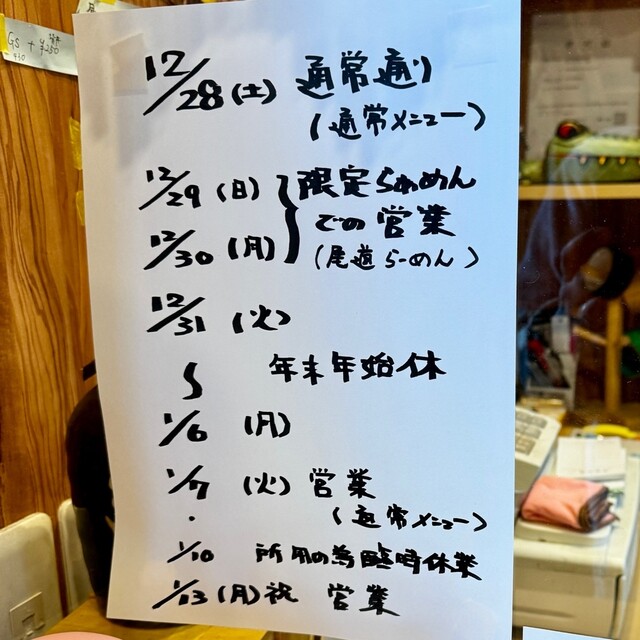 GS + ¥250
12/28(土) 通常通り
(通常メニュー)
12/29(日) 限定らぁめん
での営業
12/30(月) (尾道らーめん)
12/31(火)
〜 年末年始休
1/6(月)
1/7(火) 営業
(通常メニュー)
・
1/10 所用の為臨時休業
1/13(月)祝 営業